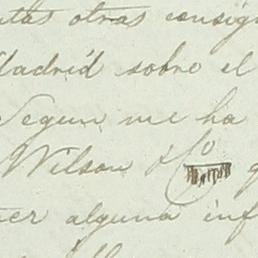 otras consign
Madrid sobre el
Segun me ha
Wilson & Co
alguna inf